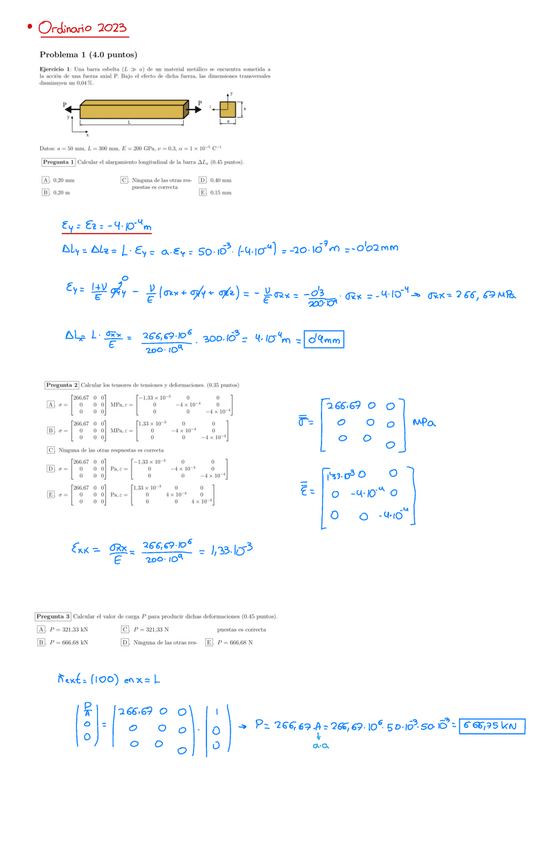 • Ordinario 2023
Problema 1 (4.0 puntos)
Ejercicio 1: Una barra esbelta (L ≫ a) de un material metálico se encuentra sometida a
la acción de una fuerza axial P. Bajo el efecto de dicha fuerza, las dimensiones transversales
disminuyen un 0.04 %.
P P
y
x
L
y
a
a
Datos: a = 50 mm, L = 300 mm, E = 200 GPa, ν = 0.3, α = 1 × 10⁻⁵ C⁻¹
Pregunta 1 Calcular el alargamiento longitudinal de la barra ΔLₓ (0.45 puntos).
A 0.20 mm C Ninguna de las otras res- D 0.40 mm
B 0.20 m puestas es correcta E 0.15 mm
εy = εz = -4·10⁻⁴ m
ΔLy = ΔLz = L·εy = a·εy = 50·10⁻³·(-4·10⁻⁴) = -20·10⁻⁷ m = -0'02 mm
εy = (1+ν)/E σyy - ν/E (σxx + σyy + σzz) = -ν/E σxx = -0'3/200·10⁹ · σxx = -4·10⁻⁴ → σxx = 266,67 MPa
ΔLx = L·σxx/E = 266,67·10⁶/200·10⁹ · 300·10⁻³ = 4·10⁻⁴ m = 0'4mm
Pregunta 2 Calcular los tensores de tensiones y deformaciones. (0.35 puntos)
A σ = [266,67 0 0; 0 0 0; 0 0 0] MPa, ε = [−1,33 × 10⁻³ 0 0; 0 −4 × 10⁻⁴ 0; 0 0 −4 × 10⁻⁴]
B σ = [266,67 0 0; 0 0 0; 0 0 0] MPa, ε = [1,33 × 10⁻³ 0 0; 0 −4 × 10⁻⁴ 0; 0 0 −4 × 10⁻⁴]
C Ninguna de las otras respuestas es correcta
D σ = [266,67 0 0; 0 0 0; 0 0 0] Pa, ε = [−1,33 × 10⁻³ 0 0; 0 −4 × 10⁻⁴ 0; 0 0 −4 × 10⁻⁴]
E σ = [266,67 0 0; 0 0 0; 0 0 0] Pa, ε = [1,33 × 10⁻³ 0 0; 0 4 × 10⁻⁴ 0; 0 0 4 × 10⁻⁴]
σ = [266,67 0 0; 0 0 0; 0 0 0] MPa
ε = [1'33·10⁻³ 0 0; 0 -4·10⁻⁴ 0; 0 0 -4·10⁻⁴]
εxx = σxx/E = 266,67·10⁶/200·10⁹ = 1,33·10⁻³
Pregunta 3 Calcular el valor de carga P para producir dichas deformaciones (0.45 puntos).
A P = 321,33 kN C P = 321,33 N puestas es correcta
B P = 666,68 kN D Ninguna de las otras res- E P = 666,68 N
n ext = (100) en x = L
(P/A; 0; 0) = (266,67 0 0; 0 0 0; 0 0 0) · (1; 0; 0) → P = 266,67·A = 266,67·10⁶·50·10⁻³·50·10⁻³ = 666,75 kN
a·a